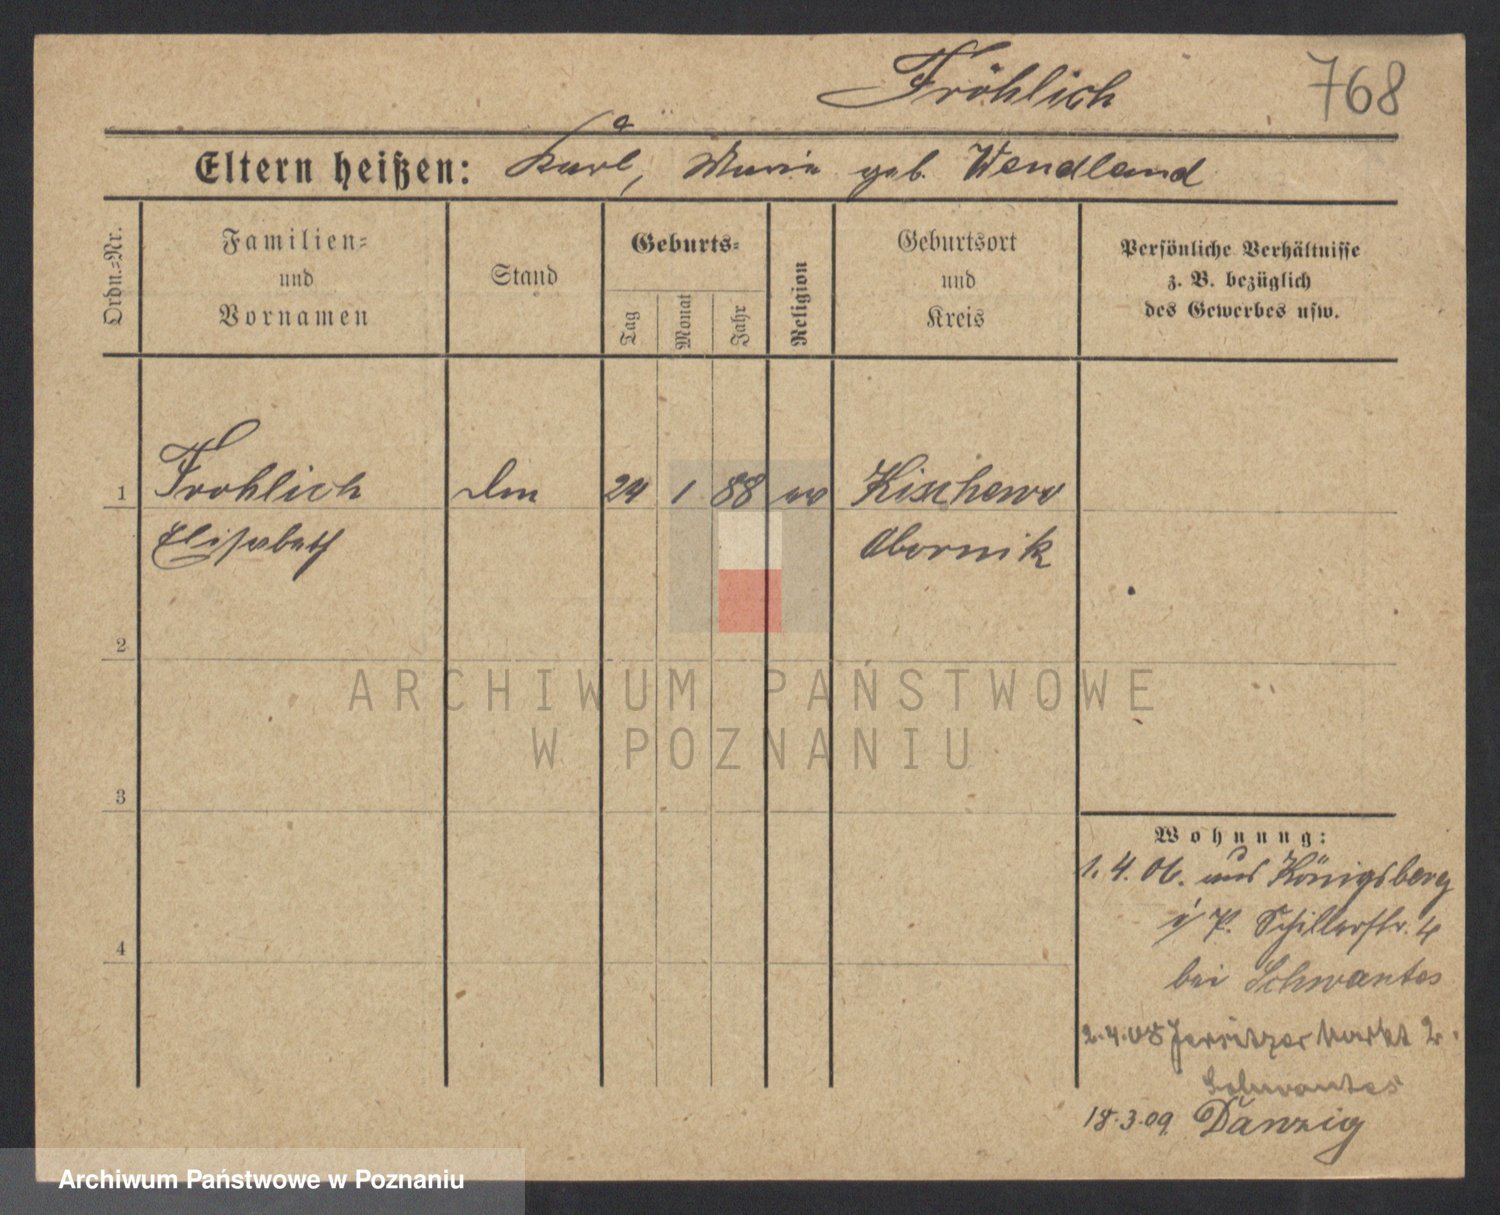 Fröhlich 768
Eltern heißen: Karl, Marie geb. Wendland
Ordn.-Nr.
Familien-
und
Vornamen
Stand
Geburts-
Tag
Monat
Jahr
Religion
Geburtsort
und
Kreis
Persönliche Verhältnisse
z. B. bezüglich
des Gewerbes usw.
1 Frohlich 24 1 88 ev Kischewo
Elisabeth Obornik
2
3
4
Wohnung:
1.4.06. aus Königsberg
i/P. Schillerstr. 4
bei Schwantes
2.4.08 Jersitzer Markt 2.
Schwantes
18.3.09. Danzig
ARCHIWUM PAŃSTWOWE
W POZNANIU
Archiwum Państwowe w Poznaniu